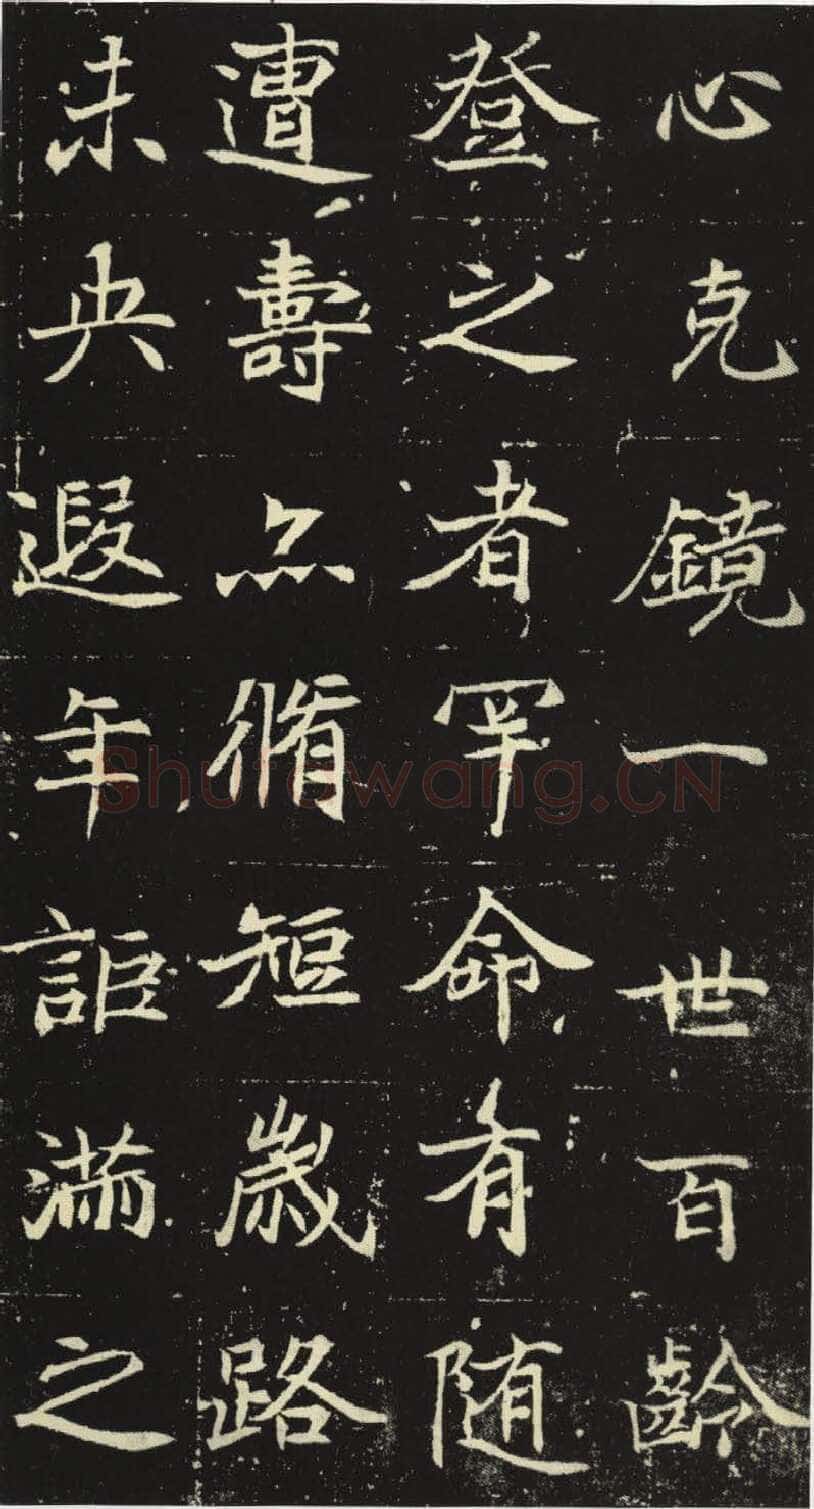 心克鏡一世百齡
登之者罕命有随
遭壽亦脩短歲路
未央遐年詎滿之
Shufawang.CN